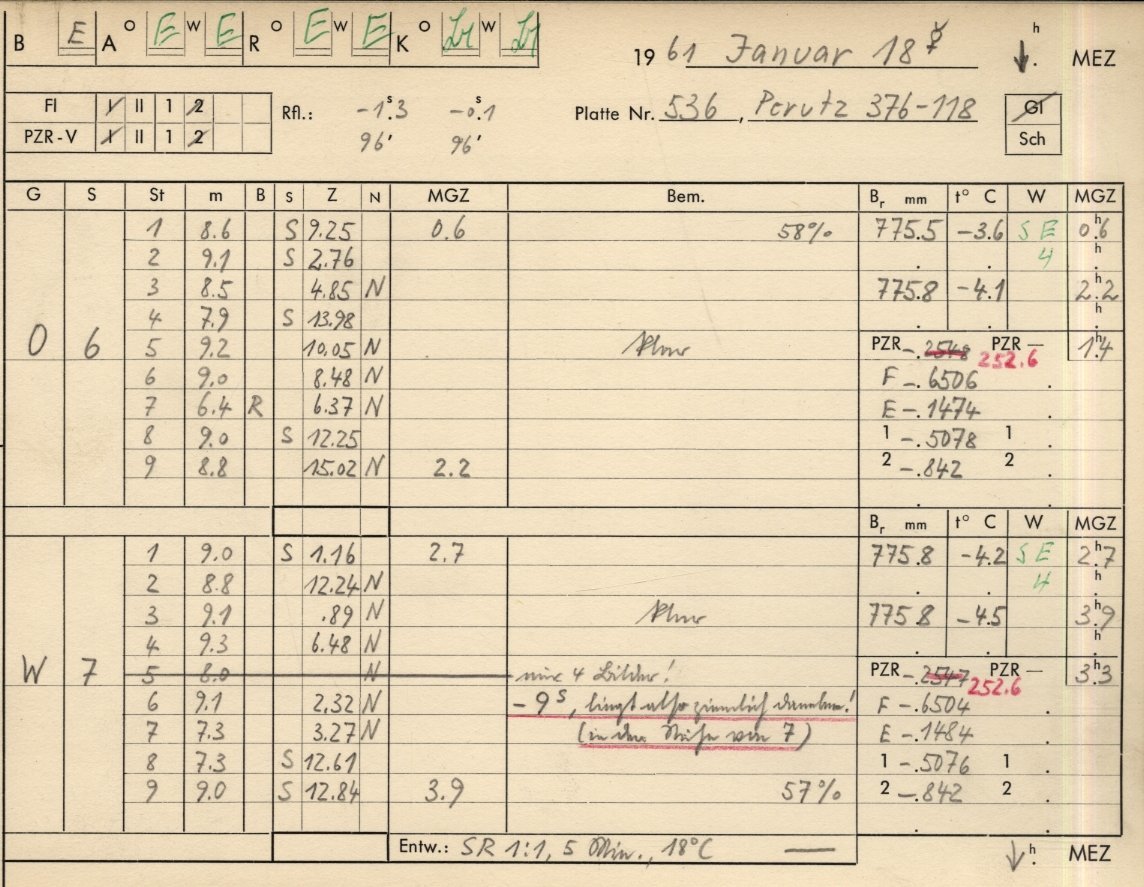 B E A O E W E R O E W E K O W
19 61 Januar 18 ☿ h MEZ
Fl I II 1 2
PZR-V I II 1 2
Rfl.: -1ˢ.3 -0ˢ.1
96' 96'
Platte Nr. 536, Perutz 376-118
Gl
Sch
G S St m B S Z N MGZ Bem. Bᵣ mm t° C W MGZ
1 8.6 S 9.25 0.6 58% 775.5 -3.6 SE 0ʰ.6
2 9.1 S 2.76 4 h
3 8.5 4.85 N 775.8 -4.1 2ʰ.2
4 7.9 S 13.98 h
O 6 5 9.2 10.05 N klar PZR -.2548 252.6 PZR — 1ʰ.4
6 9.0 8.48 N F -.6506
7 6.4 R 6.37 N E -.1474
8 9.0 S 12.25 1 -.5078 1
9 8.8 15.02 N 2.2 2 -.842 2
Bᵣ mm t° C W MGZ
1 9.0 S 1.16 2.7 775.8 -4.2 SE 2ʰ.7
2 8.8 12.24 N 4 h
3 9.1 .89 N klar 775.8 -4.5 3ʰ.9
4 9.3 6.48 N h
W 7 5 8.0 N nur 4 Bilder! PZR -.2547 252.6 PZR — 3ʰ.3
6 9.1 2.32 N -9ˢ, liegt also ziemlich daneben! F -.6504
7 7.3 3.27 N (in der Nähe von 7) E -.1484
8 7.3 S 12.61 1 -.5076 1
9 9.0 S 12.84 3.9 57% 2 -.842 2
Entw.: SR 1:1, 5 Min., 18°C — h MEZ